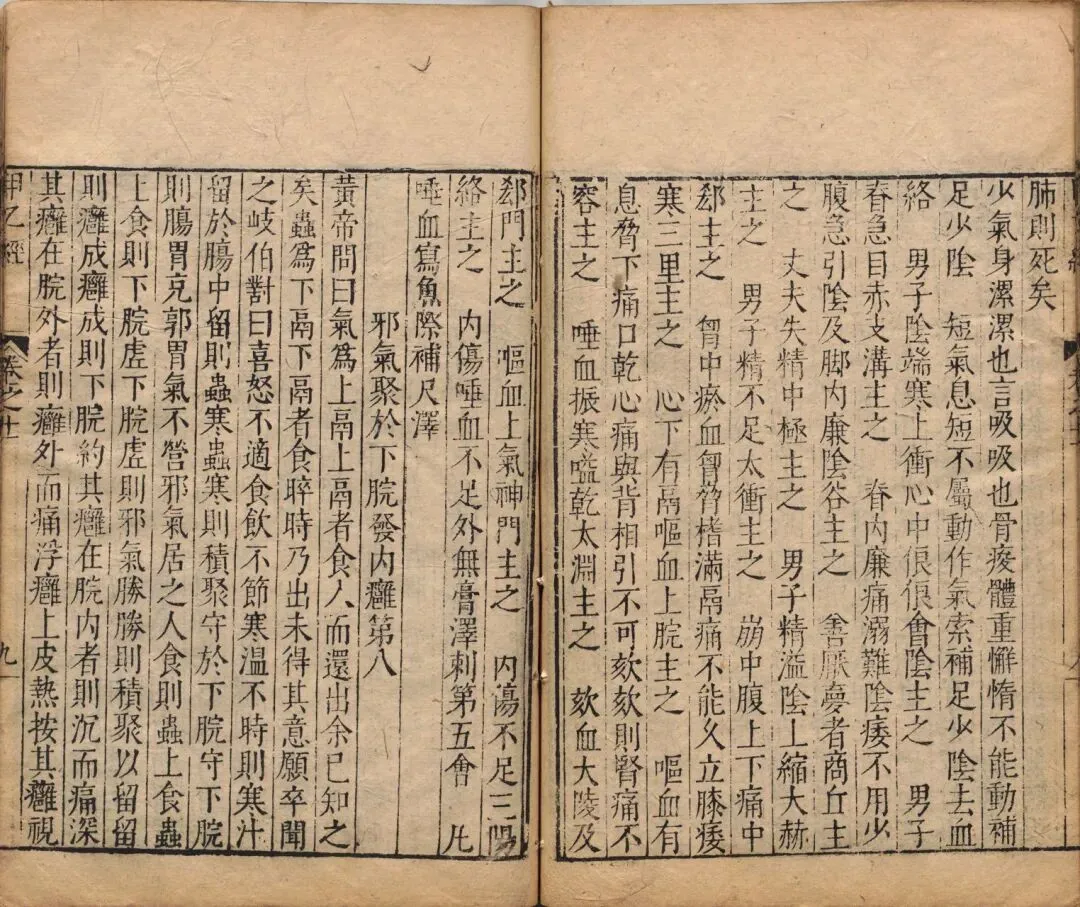 肺則死矣
少氣身漯漯也言吸吸也骨痠體重懈惰不能動補
足少陰　短氣息短不屬動作氣索補足少陰去血
絡　男子陰端寒上衝心中佷佷會陰主之　男子
脊急目赤支溝主之　脊內廉痛溺難陰痿不用少
腹急引陰及脚內廉陰谷主之　善厭夢者商丘主
之　丈夫失精中極主之　男子精溢陰上縮大赫
主之　男子精不足太衝主之　崩中腹上下痛中
郄主之　胷中瘀血胷脅榰滿鬲痛不能久立膝痿
寒三里主之　心下有鬲嘔血上脘主之　嘔血有
息脅下痛口乾心痛與背相引不可欬欬則腎痛不
容主之　唾血振寒嗌乾太淵主之　欬血大陵及
郄門主之　嘔血上氣神門主之　內傷不足三陽
絡主之　內傷唾血不足外無膏澤刺第五會　凡
唾血寫魚際補尺澤
邪氣聚於下脘發內癰第八
黃帝問曰氣爲上鬲上鬲者食人而還出余已知之
矣蟲爲下鬲下鬲者食晬時乃出未得其意願卒聞
之岐伯對曰喜怒不適食飲不節寒溫不時則寒汁
留於腸中留則蟲寒蟲寒則積聚守於下脘守下脘
則腸胃充郭胃氣不營邪氣居之人食則蟲上食蟲
上食則下脘虛下脘虛則邪氣勝勝則積聚以留留
則癰成癰成則下脘約其癰在脘內者則沉而痛深
其癰在脘外者則癰外而痛浮癰上皮熱按其癰視
甲乙經　卷之十一　九